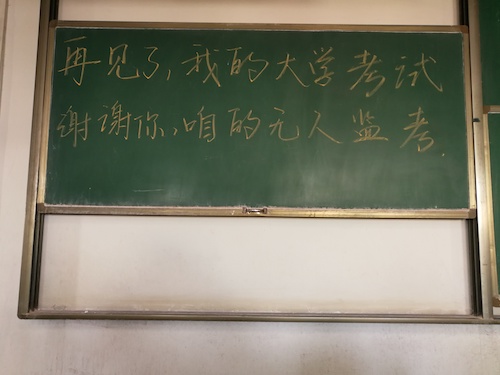 再见了,我的大学考试
谢谢你,咱的无人监考.